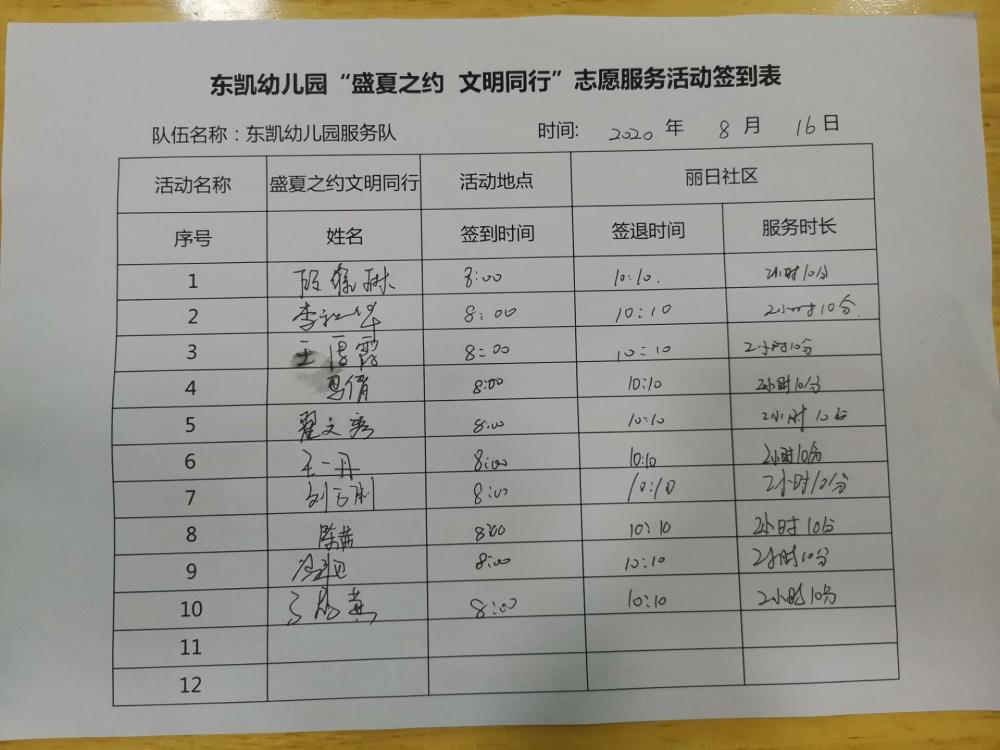 东凯幼儿园“盛夏之约 文明同行”志愿服务活动签到表
队伍名称：东凯幼儿园服务队 时间: 2020 年 8 月 16 日
活动名称 盛夏之约文明同行 活动地点 丽日社区
序号 姓名 签到时间 签退时间 服务时长
1 8:00 10:10. 2小时10分
2 李红华 8:00 10:10 2小时10分.
3 王 露 8:00 10:10 2小时10分
4 马倩 8:00 10:10 2小时10分
5 翟文秀 8:00 10:10 2小时10分
6 王一丹 8:00 10:10 2小时10分
7 刘 8:00 10:10 2小时10分
8 陈茜 8:00 10:10 2小时10分
9 8:00 10:10 2小时10分
10 8:00 10:10 2小时10分
11
12